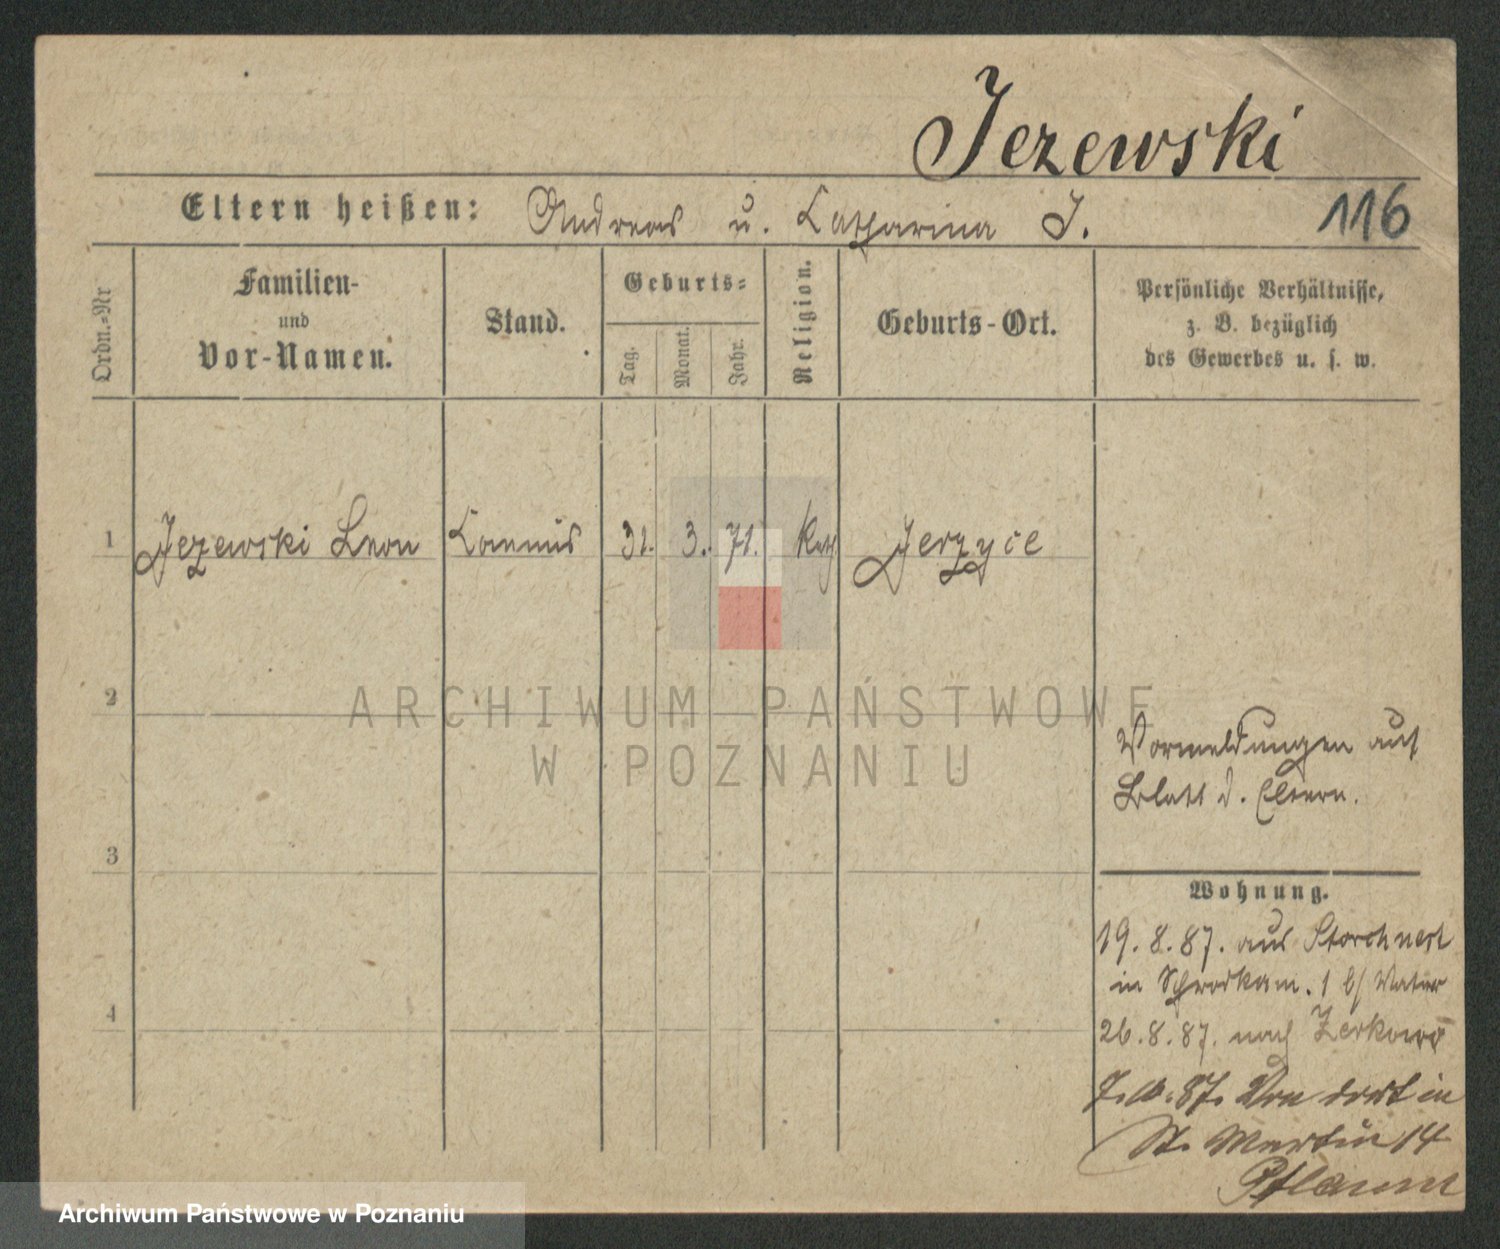 Jezewski
Eltern heißen: Andreas u. Catharina J.
116
Ordn.-Nr
Familien-
und
Vor-Namen.
Stand.
Geburts-
Tag.
Monat.
Jahr.
Religion.
Geburts-Ort.
Persönliche Verhältnisse,
z. B. bezüglich
des Gewerbes u. s. w.
1 Jezewski Leon Commis 31. 3. 71. kath Jerzyce
2
3
4
Vormeldungen auf
Blatt d. Eltern.
Wohnung.
19. 8. 87. aus Storchnest
in Schrodkam. 1 b/ Vater
26. 8. 87. nach Zerkow
87. Von dort in
St. Martin 14
Pflaum
ARCHIWUM PAŃSTWOWE
W POZNANIU
Archiwum Państwowe w Poznaniu